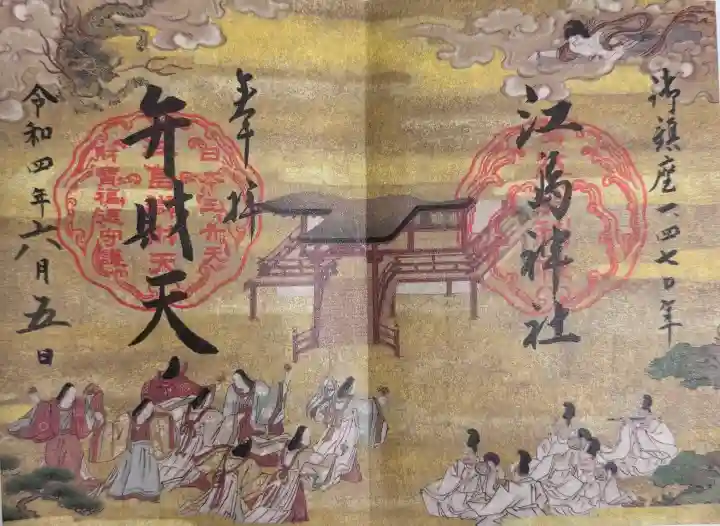 御鎮座一四七〇年
江島神社
奉拝
弁財天
令和四年六月五日